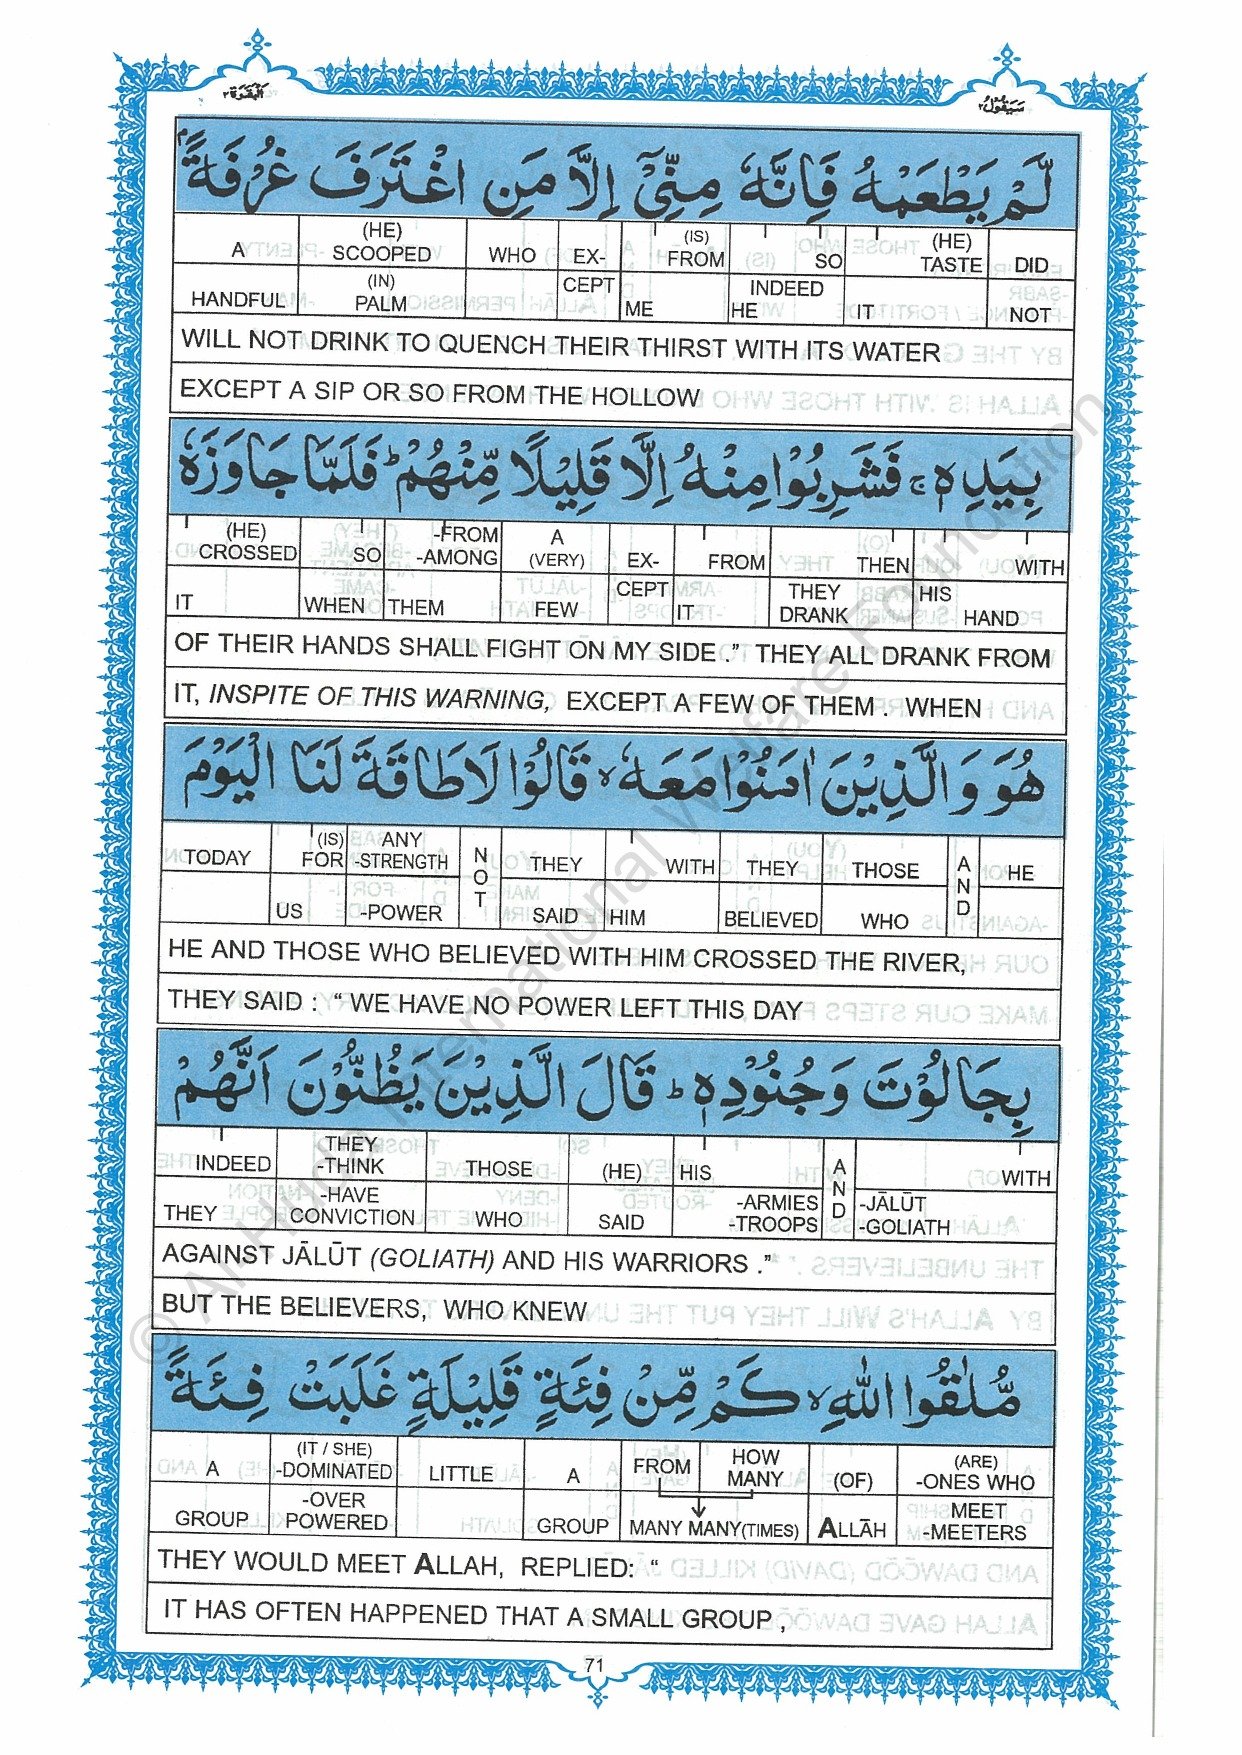 البقرة ٢
سيقول ٢
لَّمْ يَطْعَمْهُ فَاِنَّهٗ مِنِّىْٓ اِلَّا مَنِ اغْتَرَفَ غُرْفَةًۢ
A (HE) SCOOPED WHO EX- (IS) FROM SO (HE) TASTE DID
HANDFUL (IN) PALM CEPT ME INDEED HE IT NOT
WILL NOT DRINK TO QUENCH THEIR THIRST WITH ITS WATER
EXCEPT A SIP OR SO FROM THE HOLLOW
بِيَدِهٖ ۚ فَشَرِبُوْا مِنْهُ اِلَّا قَلِيْلًا مِّنْهُمْ ؕ فَلَمَّا جَاوَزَهٗ
(HE) CROSSED SO -FROM -AMONG A (VERY) EX- FROM THEN WITH
IT WHEN THEM FEW CEPT IT THEY DRANK HIS HAND
OF THEIR HANDS SHALL FIGHT ON MY SIDE ." THEY ALL DRANK FROM
IT, INSPITE OF THIS WARNING, EXCEPT A FEW OF THEM . WHEN
هُوَ وَالَّذِيْنَ اٰمَنُوْا مَعَهٗ ۙ قَالُوْا لَا طَاقَةَ لَنَا الْيَوْمَ
TODAY (IS) FOR ANY -STRENGTH NOT THEY WITH THEY THOSE AND HE
US -POWER SAID HIM BELIEVED WHO
HE AND THOSE WHO BELIEVED WITH HIM CROSSED THE RIVER,
THEY SAID : " WE HAVE NO POWER LEFT THIS DAY
بِجَالُوْتَ وَجُنُوْدِهٖ ؕ قَالَ الَّذِيْنَ يَظُنُّوْنَ اَنَّهُمْ
INDEED THEY -THINK THOSE (HE) HIS AND WITH
THEY -HAVE CONVICTION WHO SAID -ARMIES -TROOPS -JĀLŪT -GOLIATH
AGAINST JĀLŪT (GOLIATH) AND HIS WARRIORS ."
BUT THE BELIEVERS, WHO KNEW
مُّلٰقُوا اللّٰهِ ۙ كَمْ مِّنْ فِئَةٍ قَلِيْلَةٍ غَلَبَتْ فِئَةً
A (IT / SHE) -DOMINATED LITTLE A FROM HOW MANY (OF) (ARE) -ONES WHO
GROUP -OVER POWERED GROUP MANY MANY(TIMES) ALLĀH MEET -MEETERS
THEY WOULD MEET ALLAH, REPLIED: "
IT HAS OFTEN HAPPENED THAT A SMALL GROUP ,
71